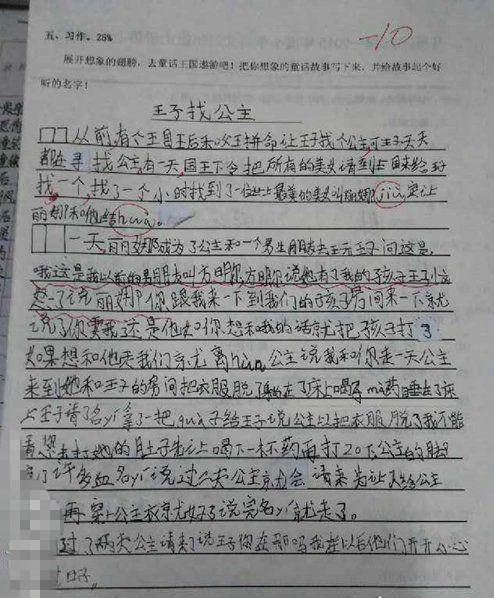 -10
五、习作。28%
展开想象的翅膀，去童话王国遨游吧！把你想象的童话故事写下来，并给故事起个好
听的名字！
王子找公主
从前，有个王国王后和父王拼命让王子找个公主可王子天天
都在寻找公主，有一天，国王下令把所有的美女请到
找一个，找了一个小时找到了位世上最美的美女叫丽娜jiu
丽娜和他结hun。
一天丽娜成为了公主和一个男生 去玩王子问这是，
哦这是我以前的男朋友叫方明你方明你说她有了我的孩子王子
一了说丽娜你跟我来一下到我们的孩子房间来一下就
说了你要我这是他和你想和我的话就把孩子打了
如果想和他走我们就离hun公主说我和你走一天公主
来到她和王子的房间把衣服脱了 在了床上喝了ma药睡在了床
上王子请了名yi拿了一把 子给王子说公主 把衣服脱了我不能
看 去打她的肚子先让喝下一杯药再打20下公主的肚
了许多血名yi说过 公主就会 请来 让 公主
再穿上公主衣就好了说完名yi就走了。
过了两天公主请来了说王子你在那吗我在以后他们开开心心
过日子。